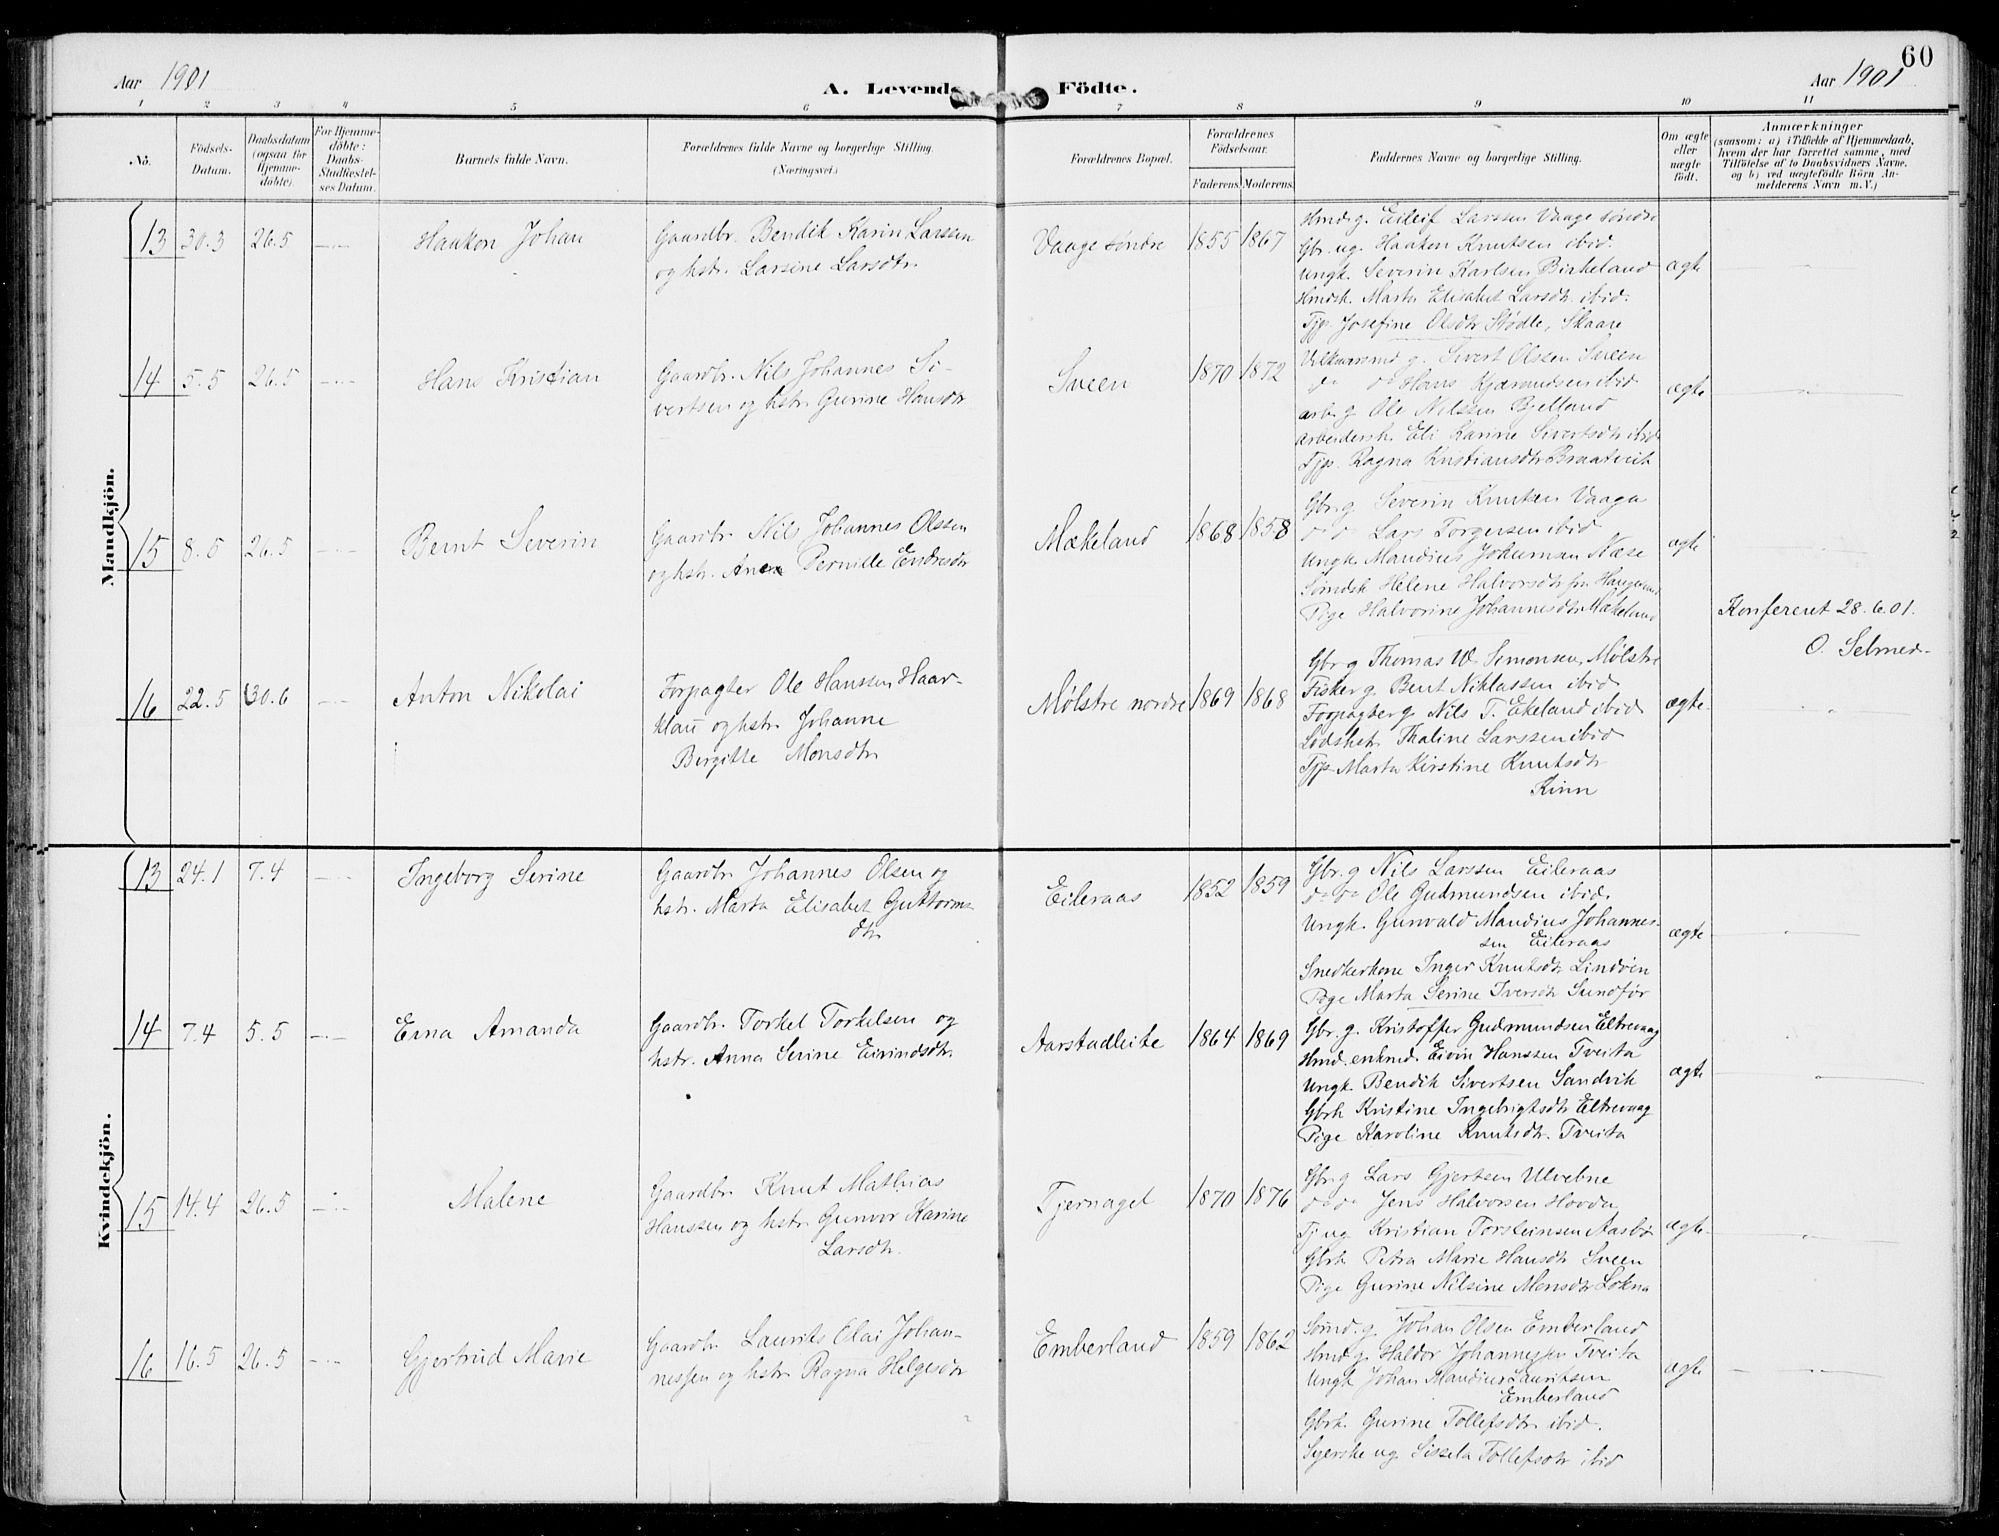 60
Aar 1901
A. Levende Födte.
Aar 1901
1 2 3 4 5 6 7 8 9 10 11
No.
Födsels-Datum.
Daabsdatum (ogsaa for Hjemme-döbte).
For Hjemme-döbte: Daabs-Stadfæstel-ses Datum.
Barnets fulde Navn.
Forældrenes fulde Navne og borgerlige Stilling.
(Næringsvei.)
Forældrenes Bopæl.
Forældrenes Födselsaar.
Faderens. Moderens.
Faddernes Navne og borgerlige Stilling.
Om ægte eller uægte födt.
Anmærkninger
(saasom: a) i Tilfælde af Hjemmedaab,
hvem der har forrettet samme, med
Tilföielse af to Daabsvidners Navne,
og b) ved uægtefödte Börn An-
melderens Navn m. V.)
Mandkjön.
13 30.3 26.5 Haakon Johan
Gaardbr. Bendik Karin Larssen
og hstr. Larsine Larsdtr.
Vaage søndre 1855 1867
Hmd. g. Eileif Larssen Vaage søndre
Gbr. ug. Haakon Knutsen ibid.
Ungk. Severin Karlsen Birkeland
Hmdsk. Marta Elisabet Larsdtr. ibid.
Tjp. Josefine Olsdtr Stødle, Skaare
ægte
14 5.5 26.5 Hans Kristian
Gaardbr. Nils Johannes Si-
vertsen og hstr Gurine Hansdtr
Sveen 1870 1872
g. Sivert Olssen Sveen
do do Hans Kjærandsen ibid
arb. g Ole Nilssen Bjelland
Arbeidersk. Eli Karine Sivertsdtr ibid
Tjp. Ragna Kristiansdtr Braatveit
ægte
15 8.5 26.5 Bernt Severin
Gaardbr Nils Johannes Olssen
og hstr. Anna Pernille Endresdtr
Mækeland 1868 1858
Gbr. g Severin Knutsen Vaage
do do Lars Torgersen ibid
Ungk. Mandius Johannan Næse
Sømdsk Helene Halvorsdtr fra Haugesund
Pige Halvorine Johannesdtr Mækeland
ægte
Konfereret 28.6.01.
O. Selmer.
16 22.5 30.6 Anton Nikolai
Forpagter Ole Hanssen Haar-
klau og hstr. Johanne
Birgitte Monsdtr
Mølstre nordre 1869 1868
Gbr g Thomas W. Simonsen, Mølstre
Fisker g. Bent Niklassen ibid
Forpagter g Nils T. Ekeland ibid
Lodshstr. Thaline Larssen ibid
Tjp. Marta Kirstine Knutsdtr
Kinn
ægte
Kvindekjön.
13 24.1 7.4 Ingeborg Serine
Gaardbr. Johannes Olsen og
hstr. Marta Elisabet Guttorms-
dtr
Eileraas 1852 1859
Gbr. g Nils Larssen Eileraas
do do Ole Gudmundsen ibid.
Ungk. Gunvald Mandius Johannes-
sen Eileraas
Snedkerkone Inger Knutsdtr Lindøen
Pige Marta Serine Iversdtr Sundfør
ægte
14 7.4 5.5 Erna Amanda
Gaardbr. Torkel Torkelsen og
hstr. Anna Serine Eivindsdtr.
Aarstadleite 1864 1869
Gbr. g. Kristoffer Gudmundsen Eltrevaag
Hmd. enkmd. Eivin Hanssen Tveita
Ungk. Bendik Sivertsen Sandvik
Gbrk Kristine Ingebrigtsdtr Eltrevaag
Pige Karoline Knutsdtr. Tveita
ægte
15 14.4 26.5 Malene
Gaardbr Knut Mathias
Hanssen og hstr. Gunvor Karine
Larsdtr.
Tjernagel 1870 1876
Gbr. g Lars Gjertsen Ulvebne
do do Jens Halvorsen Hovda
Tj ug Kristian Torsteinsen Aasbø
Gbrk Petra Marie Hansdtr Sveen
Pige Gurine Nilsine Monsdtr Lokna
ægte
16 16.5 26.5 Gjertrud Marie
Gaardbr Laurits Olai Johan-
nessen og hstr. Ragna Helgesdtr
Emberland 1859 1862
Sømd. g. Johan Olsen Emberland
Hmd g Haldor Johannessen Tveita
Ungk Johan Mandius Lauritsen
Emberland
Gbrk. Gurine Tollefsdtr ibid.
Syerske ug. Sissela Tollefsdtr ibid
ægte